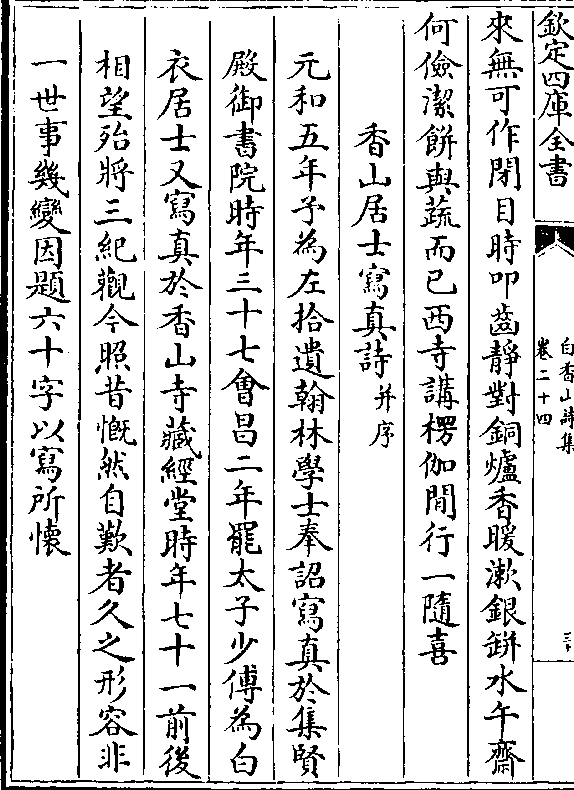 欽定四庫全書
白香山詩集
卷二十四
來無可作閉目時叩齒靜對銅爐香暖漱銀缾水午齋
何儉潔餅與蔬而已西寺講楞伽閒行一隨喜
香山居士寫真詩并序
元和五年予為左拾遺翰林學士奉詔寫真於集賢
殿御書院時年三十七會昌二年罷太子少傅為白
衣居士又寫真於香山寺藏經堂時年七十一前後
相望殆將三紀觀今照昔慨然自歎者久之形容非
一世事幾變因題六十字以寫所懷